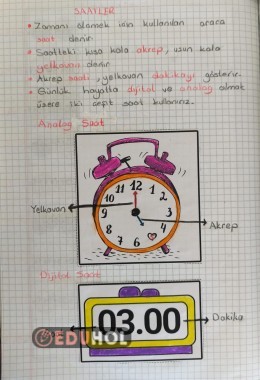 SAATLER
Zamanı ölçmek için kullanılan araca
saat denir.
Saatteki kısa kola akrep, uzun kola
yelkovan denir.
Akrep saati, yelkovan dakikayı gösterir.
Günlük hayatta dijital ve analog olmak
üzere iki çeşit saat kullanırız.
Analog Saat
12
11
1
10
2
9
3
8
4
7
6
Yelkovan
Akrep
Dijital Saat
03.00
Dakika
EDUHOL